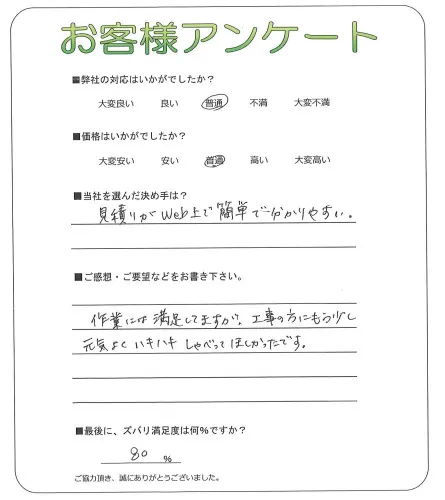 お客様アンケート
■弊社の対応はいかがでしたか?
大変良い 良い 普通 不満 大変不満
■価格はいかがでしたか?
大変安い 安い 普通 高い 大変高い
■当社を選んだ決め手は?
見積りがWeb上で簡単で分かりやすい。
■ご感想・ご要望などをお書き下さい。
作業には満足してますが、工事の方にもう少し
元気よくハキハキしゃべってほしかったです。
■最後に、ズバリ満足度は何%ですか?
80 %
ご協力頂き、誠にありがとうございました。